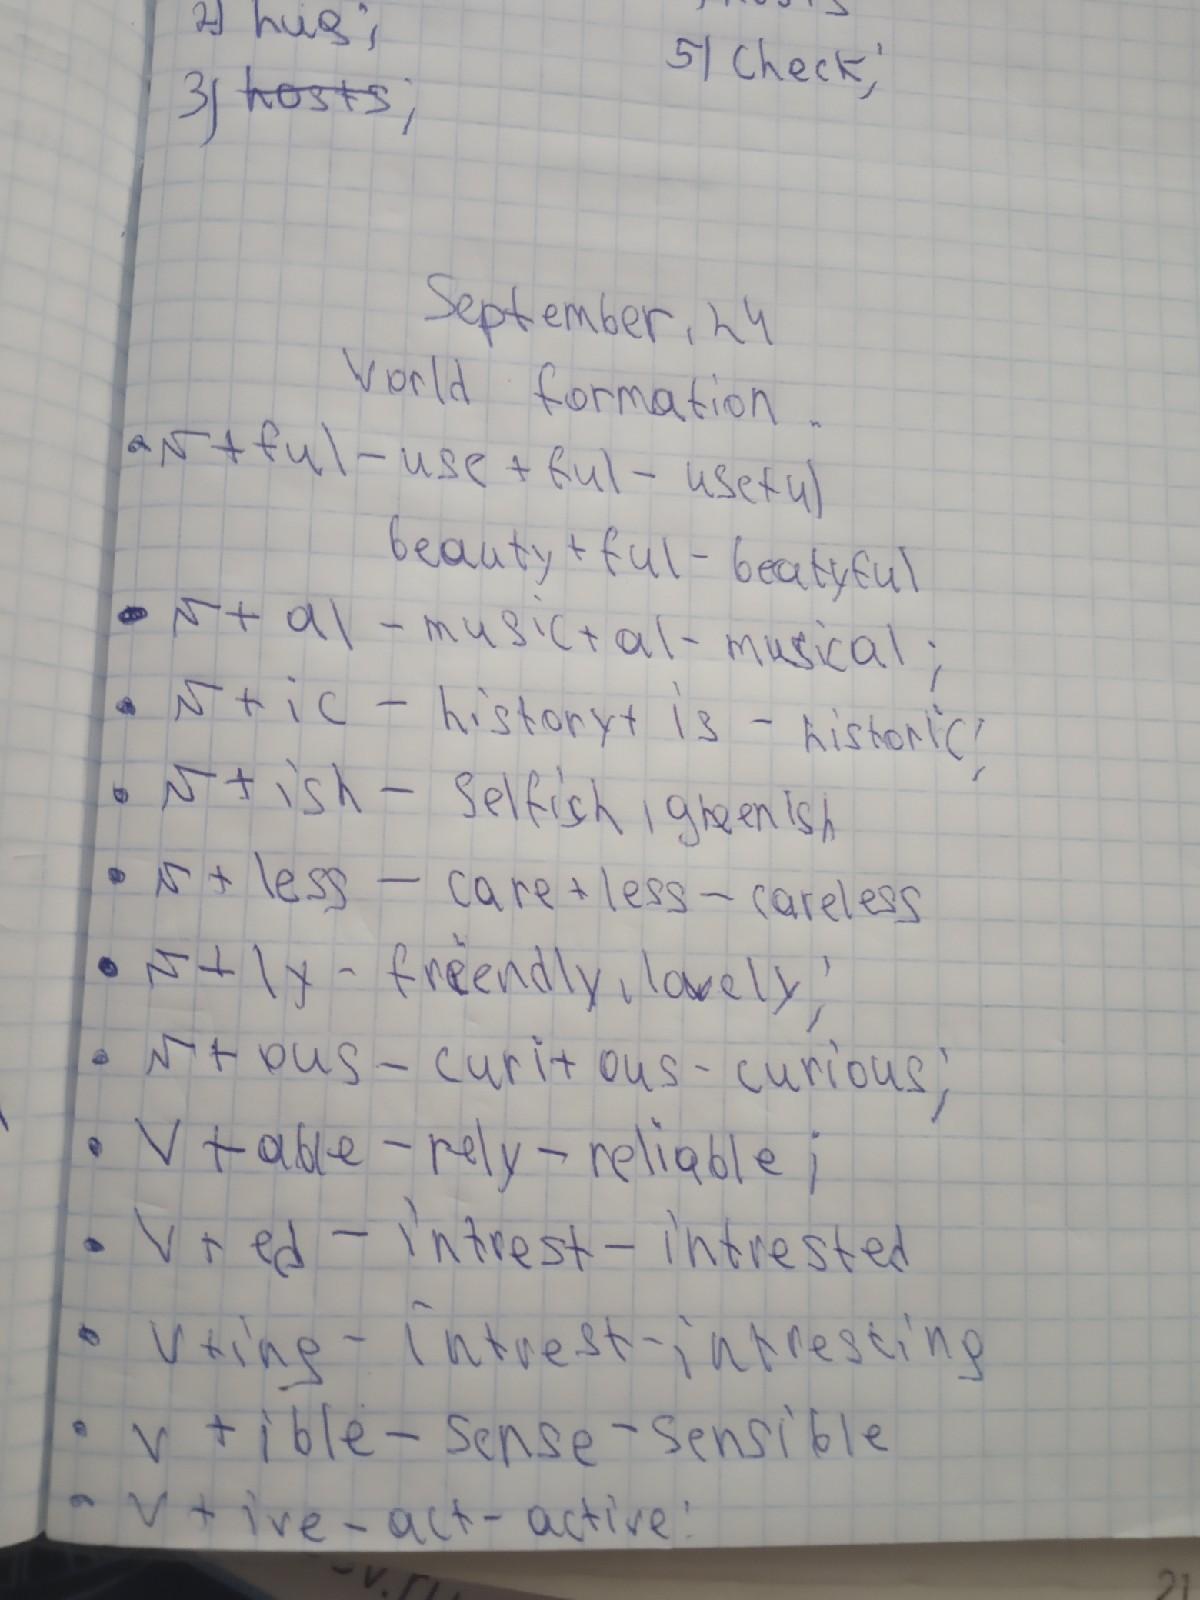 2) hug;
3) hosts;
5) Check;
September, 24
World formation.
• N + ful – use + ful – useful
beauty + ful – beatyful
• N + al – music + al – musical;
• N + ic – history + is – historic;
• N + ish – selfish, greenish
• N + less – care + less – careless
• N + ly – friendly, lovely;
• N + ous – curi + ous – curious;
• V + able – rely – reliable;
• V + ed – intrest – intrested
• V + ing – intrest – intresting
• V + ible – sense – sensible
• V + ive – act – active;
21